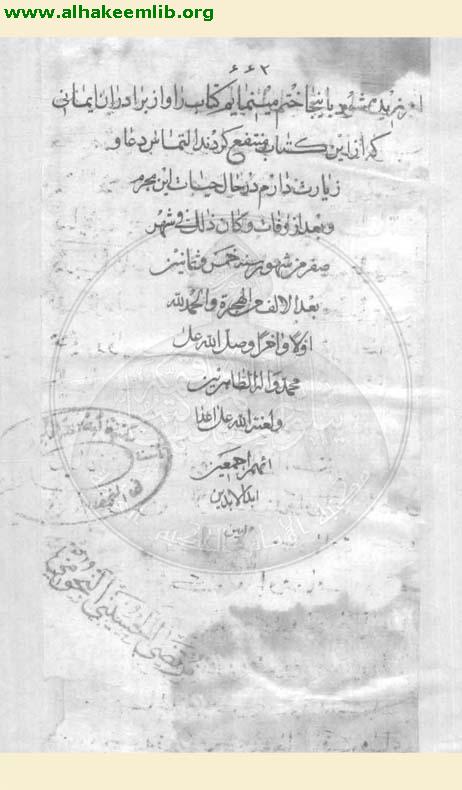 www.alhakeemlib.org
۶۶۲
باینجا ختم مینمایم کتاب را و از برادران ایمانی
که از این کتاب منتفع کردند التماس دعا و
زیارت دارم در حال حیات این مجرم
و بعد از وفات و کان ذلك فی شهر
صفر من شهور سنه خمس و ثمانین
بعد الالف من الهجرة والحمد لله
اولا و اخرا وصلی الله علی
محمد واله الطاهرین
ولعنة الله علی اعدا
ئهم اجمعین
ابد الابدین
امین
مرتضی الحسینی النجومی